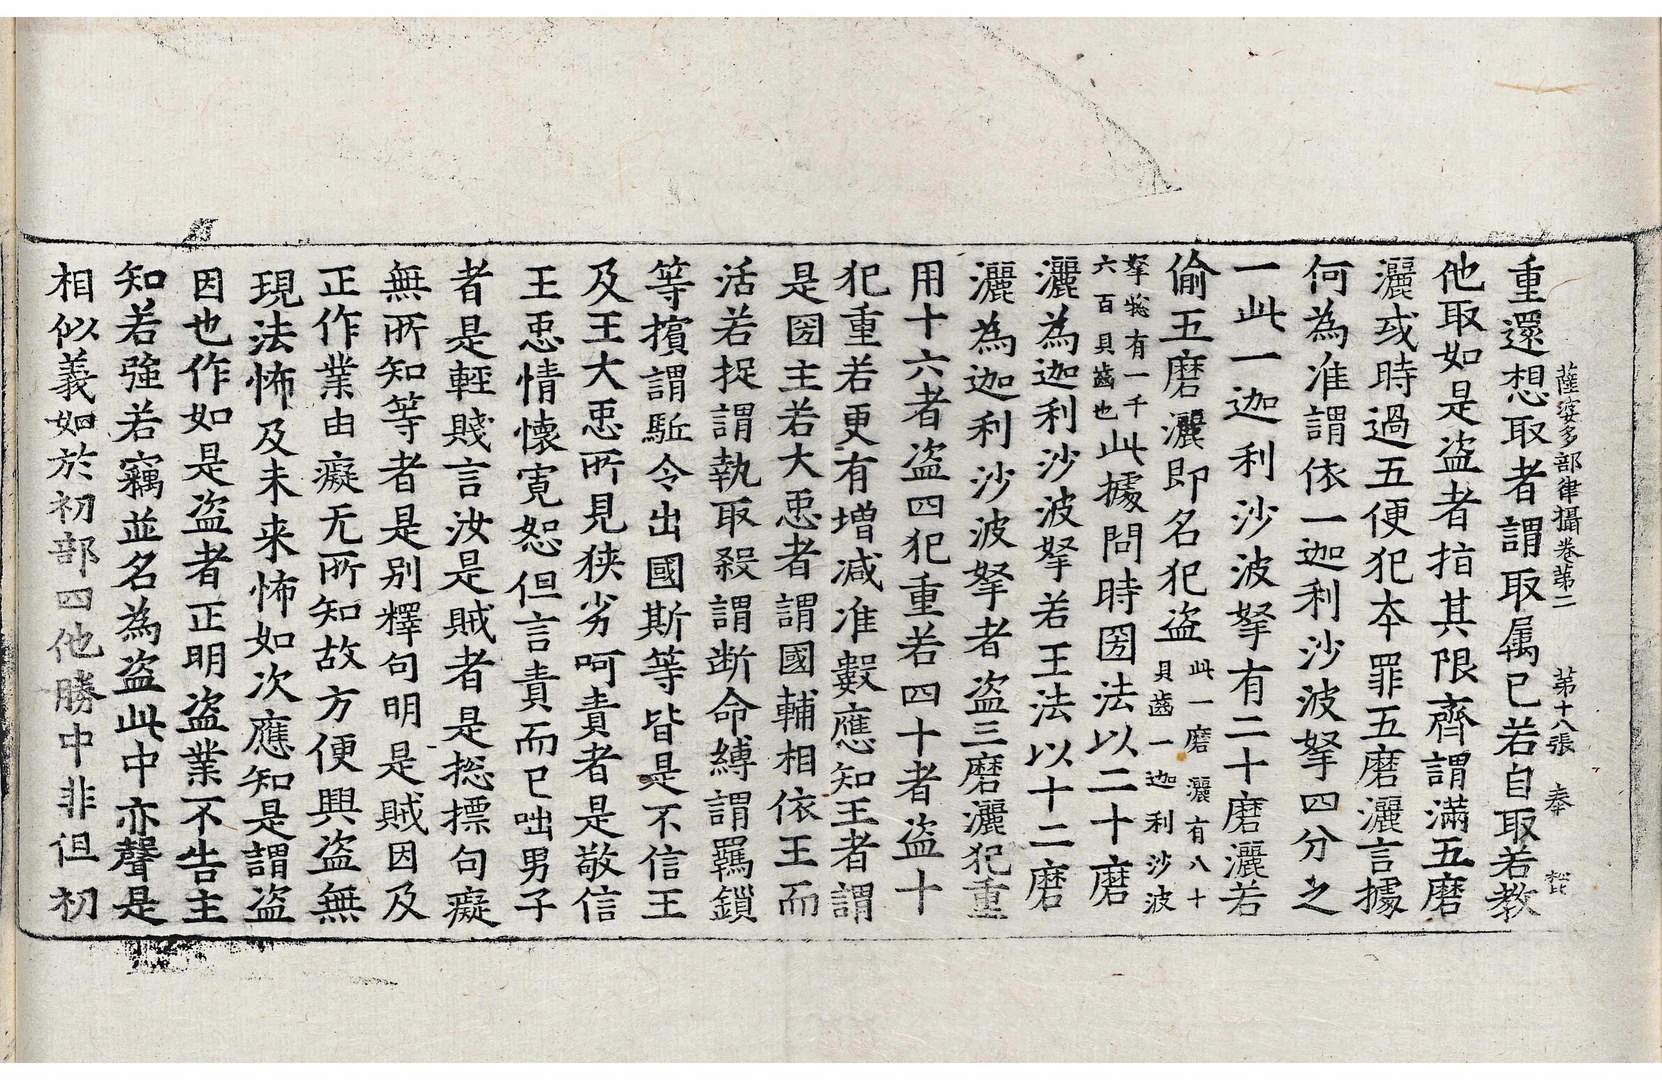 薩婆多部律攝卷第二　第十八張　奉
重還想取者謂取属已若自取若教
他取如是盗者指其限齊謂滿五磨
灑或時過五便犯本罪五磨灑言據
何為准謂依一迦利沙波拏四分之
一此一迦利沙波拏有二十磨灑若
偷五磨灑即名犯盗此一磨灑有八十貝齒一迦利沙波
拏揔有一千六百貝齒也此據問時圀法以二十磨
灑為迦利沙波拏若王法以十二磨
灑為迦利沙波拏者盗三磨灑犯重
用十六者盗四犯重若四十者盗十
犯重若更有增减准數應知王者謂
是圀主若大惡者謂國輔相依王而
活若捉謂執取殺謂断命縛謂羈鎖
等擯謂駈令出國斯等皆是不信王
及王大惡所見狭劣呵責者是敬信
王惡情懐寬恕但言責而已咄男子
者是輕賤言汝是賊者是揔摽句癡
無所知等者是别釋句明是賊因及
正作業由癡无所知故方便興盗無
現法怖及未来怖如次應知是謂盗
因也作如是盗者正明盗業不告主
知若強若竊並名為盗此中亦聲是
相似義如於初部四他勝中非但初